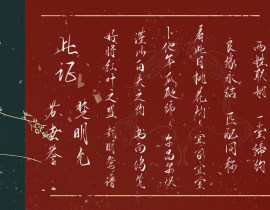 两姓联姻 一堂缔约
良缘永结 匹配同称
看此日桃花灼灼 宜室宜家
卜他年瓜瓞绵绵 尔昌尔炽
谨以白头之约 书向鸿笺
好将红叶之盟 载明鸳谱
此证
楚明允
苏世誉